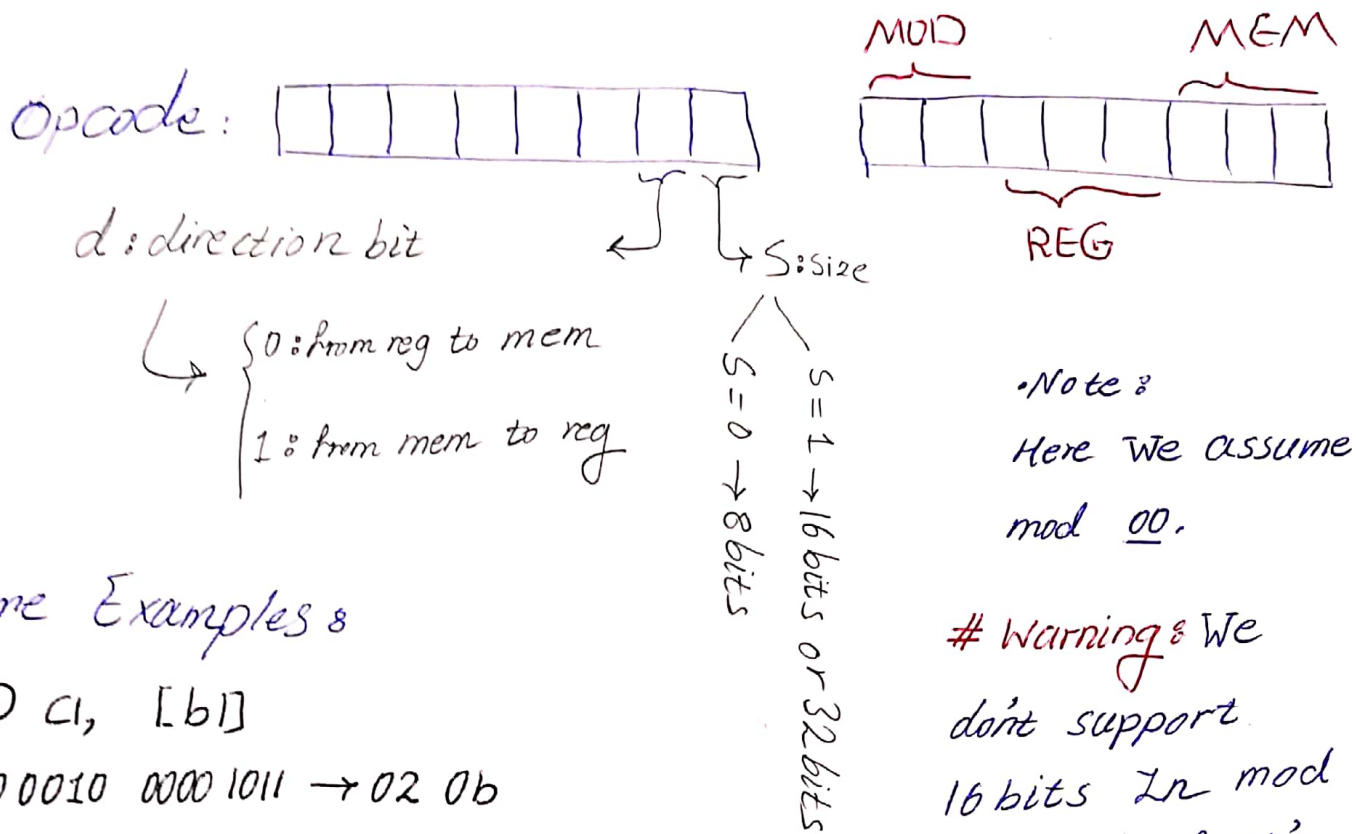 MOD MEM
Opcode:
REG
d: direction bit
S: size
0: from reg to mem
1: from mem to reg
S=0 → 8 bits
S=1 → 16 bits or 32 bits
•Note:
Here We assume
mod 00.
Examples:
# Warning: We
don't support
16 bits In mod
cl, [bl]
0010 0000 1011 → 02 0b